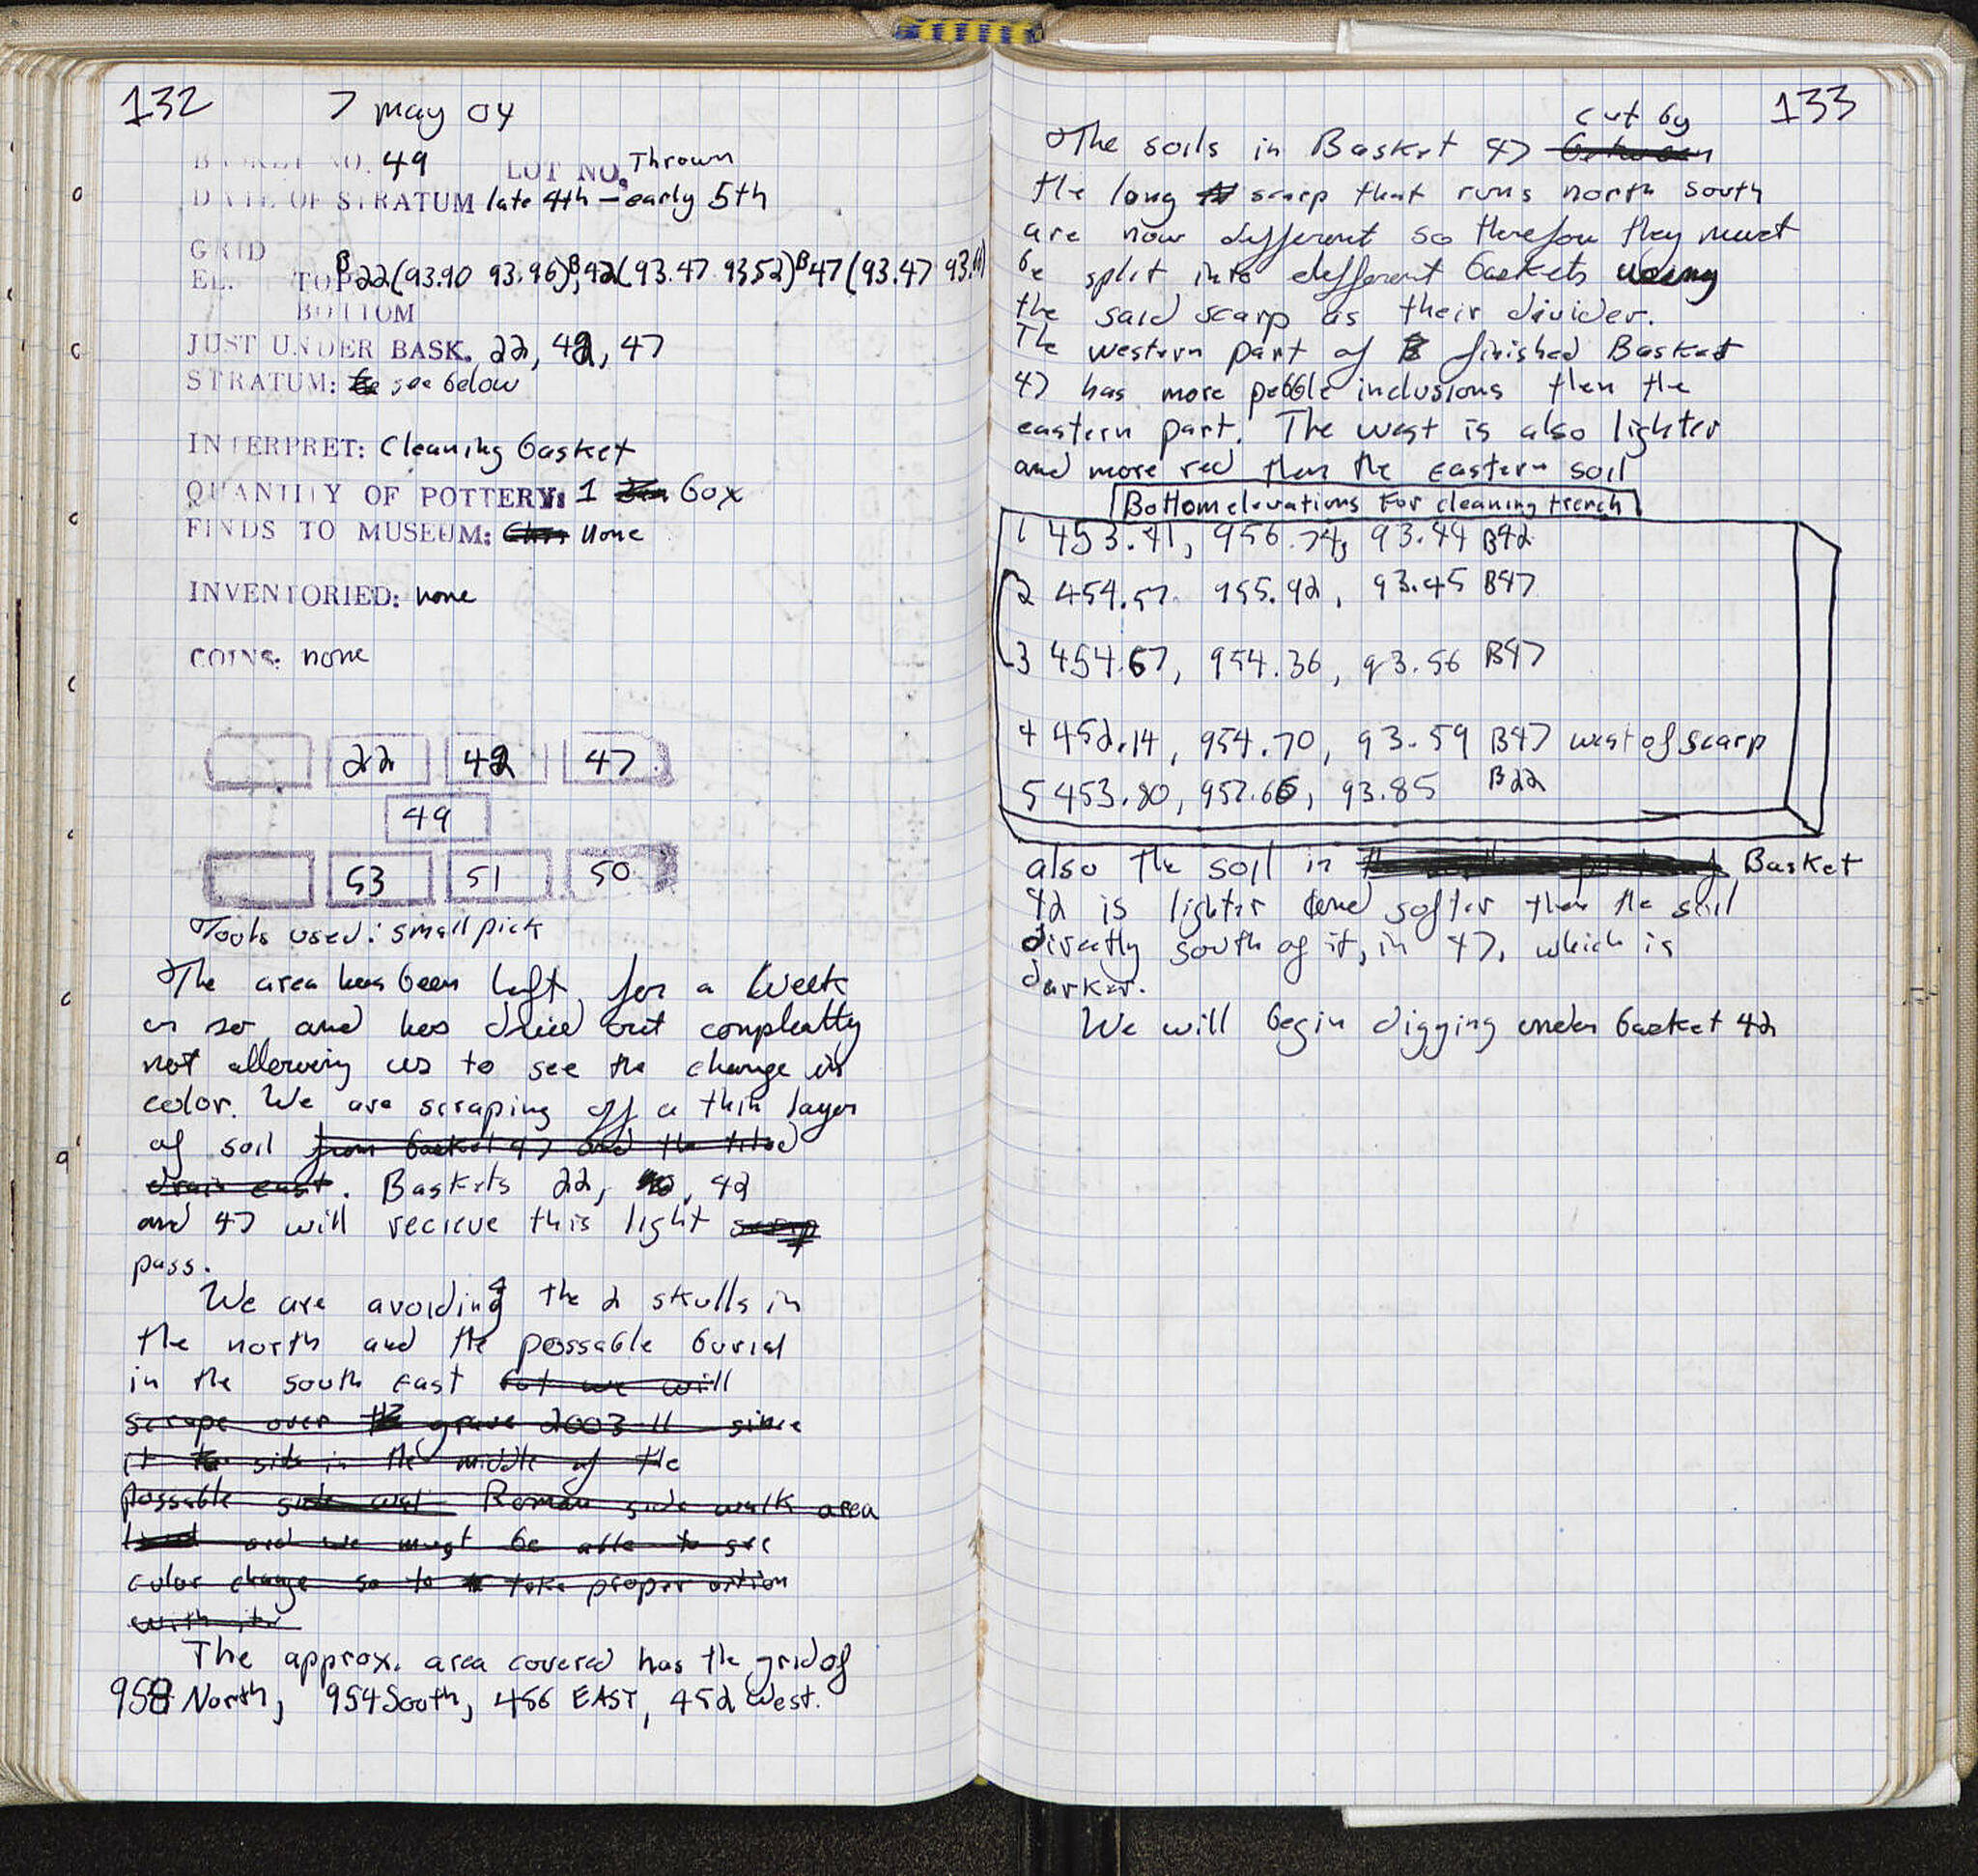 132 7 may 04
BASKET NO. 49 LOT NO. Thrown
DATE OF STRATUM late 4th – early 5th
GRID
EL. TOP B22(93.90 93.96) B,42(93.47 93.52) B47(93.47 93.
BOTTOM
JUST UNDER BASK. 22, 42, 47
STRATUM: see below
INTERPRET: Cleaning basket
QUANTITY OF POTTERY: 1 box
FINDS TO MUSEUM: none
INVENTORIED: none
COINS: none
22 42 47
49
53 51 50
Tools used: small pick
The area has been left for a week
or so and has dried out compleatly
not allowing us to see the change in
color. We are scraping off a thin layer
of soil from basket 47 and the tiled
drain east. Baskets 22, 42
and 47 will recieve this light scrap
pass.
We are avoiding the 2 skulls in
the north and the possable burial
in the south east but we will
scrape over the grave 2003-11 since
it sits in the middle of the
possable side wal Roman side walk area
and we must be able to see
color change so to take proper action
with it.
The approx. area covered has the grid of
958 North, 954 South, 456 EAST, 452 West.
133
cut by
The soils in Basket 47 between
the long scarp that runs north south
are now different so therefore they must
be split into different baskets using
the said scarp as their divider.
The western part of finished Basket
47 has more pebble inclusions then the
eastern part. The west is also lighter
and more red then the eastern soil
Bottom elevations For cleaning trench
1 453.41, 956.74, 93.44 B42
2 454.57. 955.92, 93.45 B47
3 454.67, 954.36, 93.56 B47
4 452.14, 954.70, 93.59 B47 west of scarp
5 453.80, 957.66, 93.85 B22
also the soil in Basket
42 is lighter and softer then the soil
directly south of it, in 47, which is
darker.
We will begin digging under basket 42